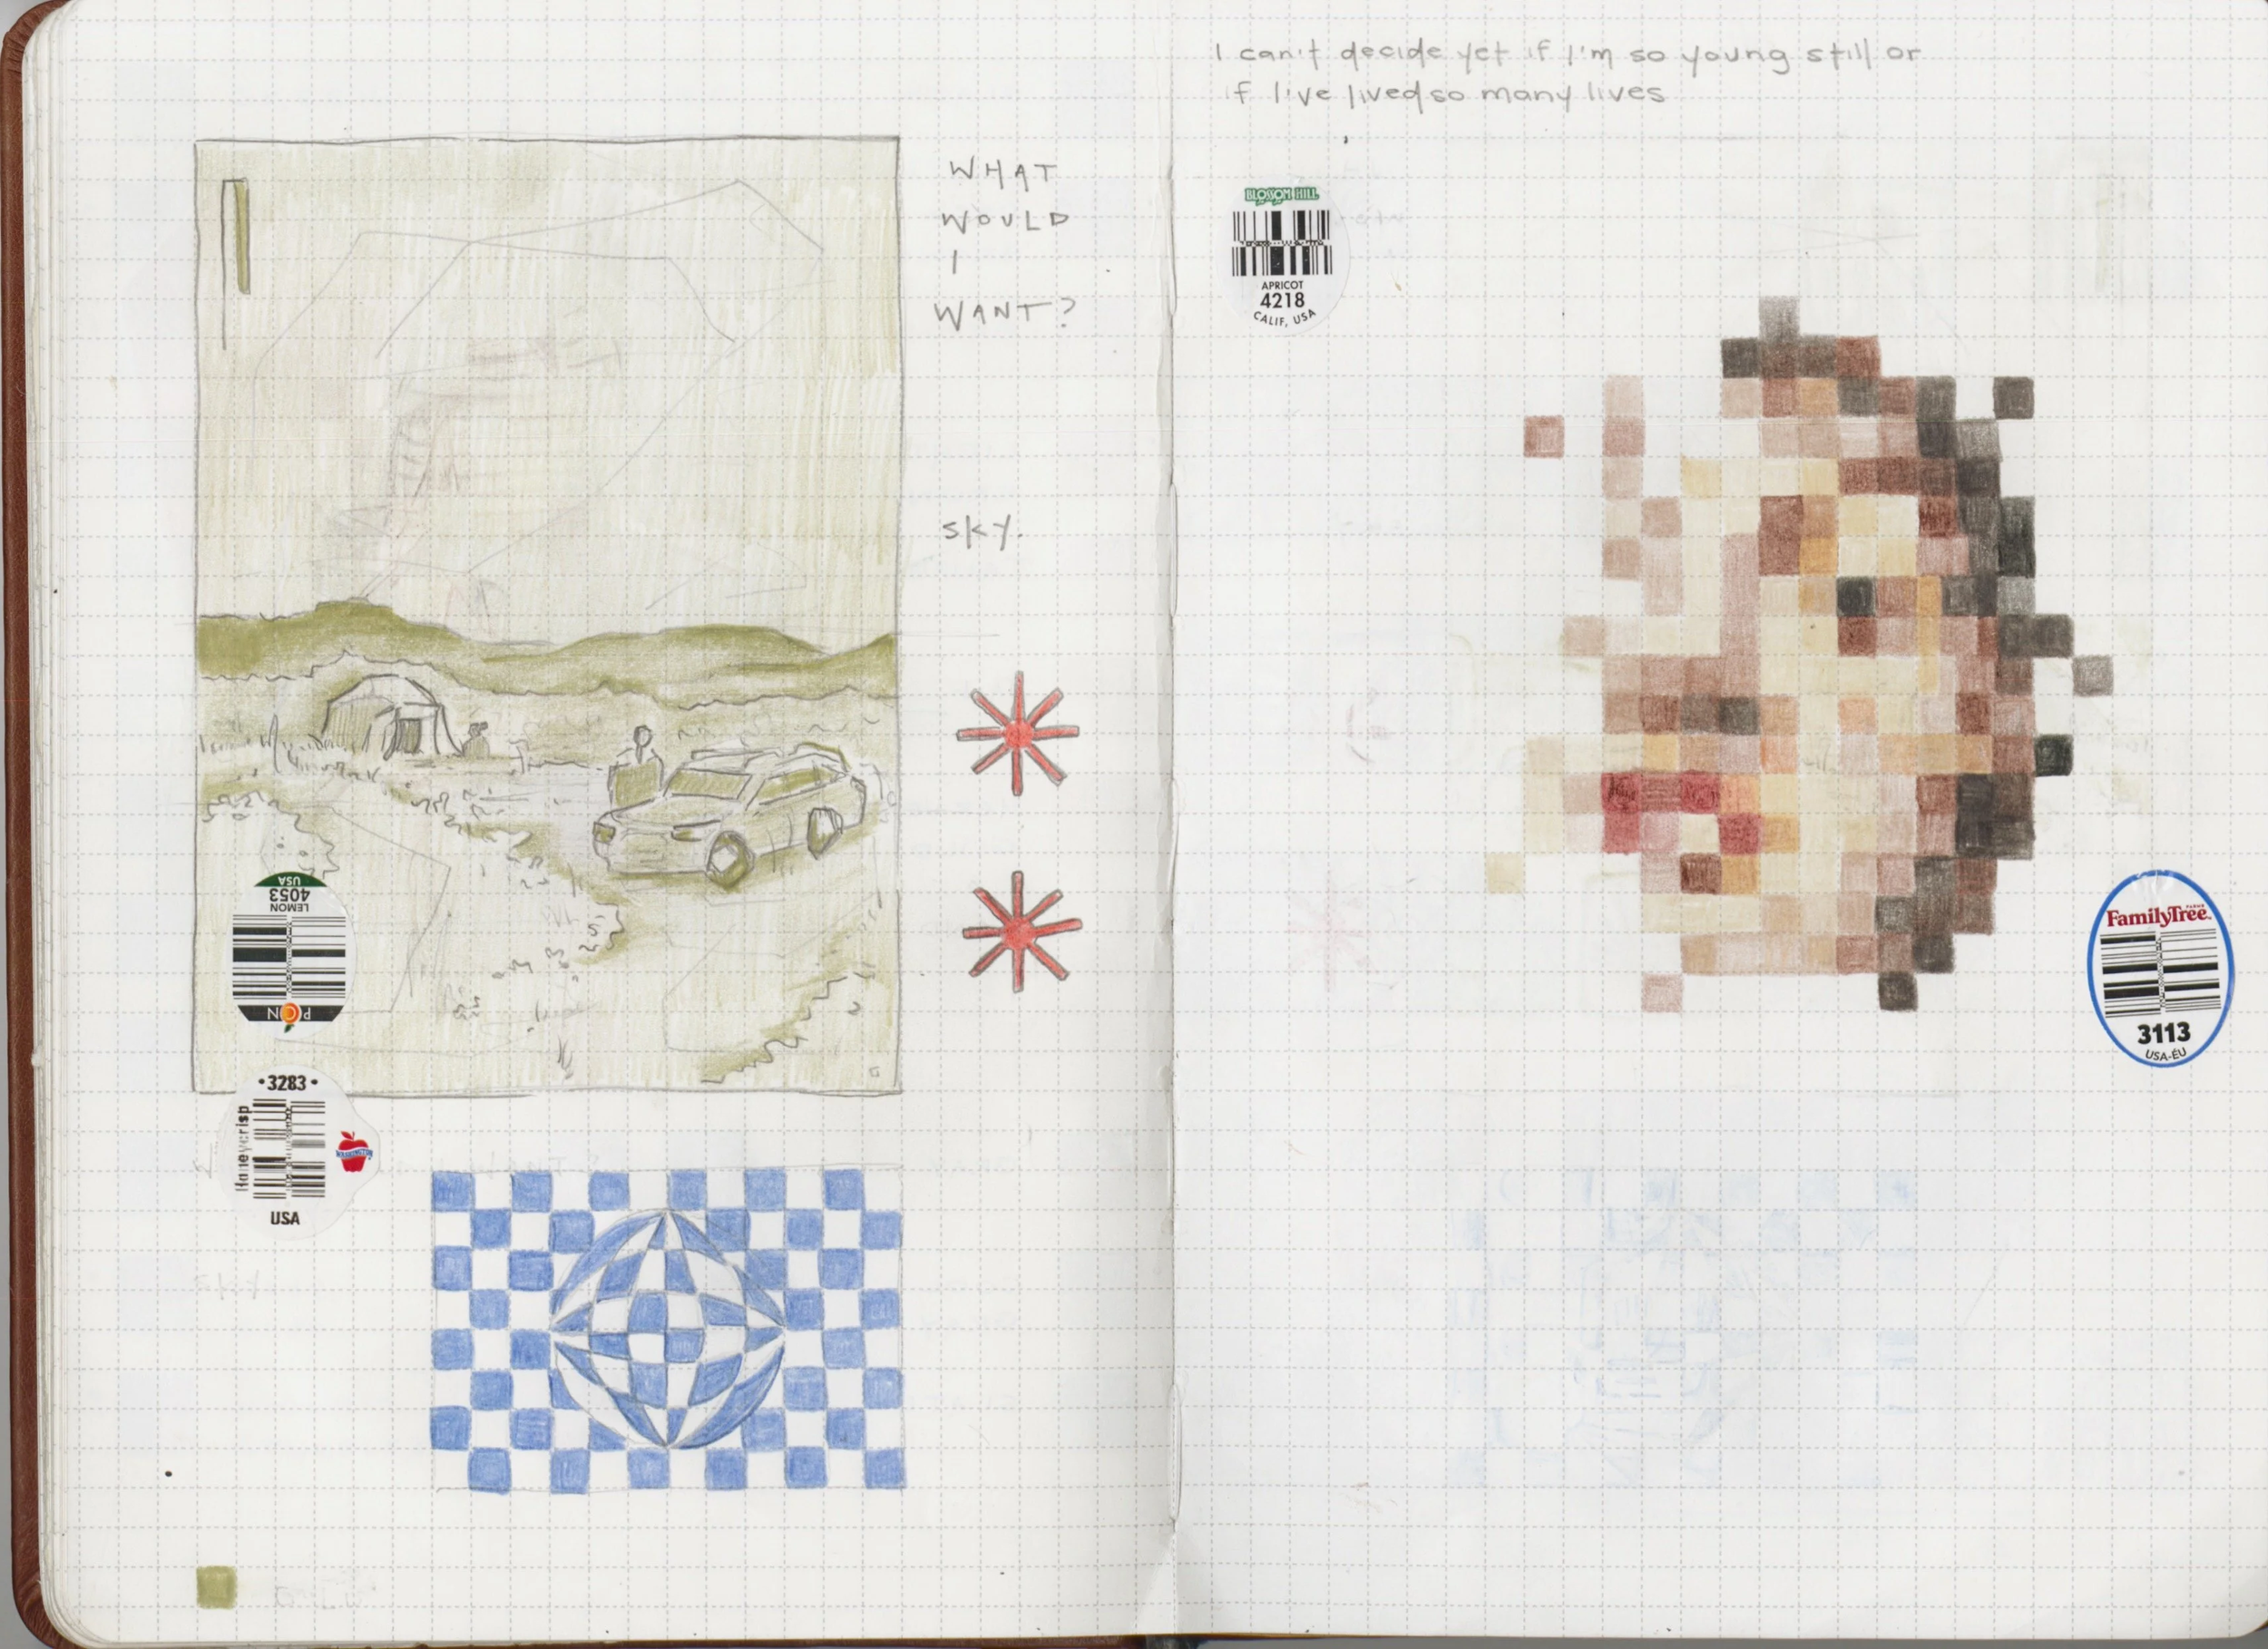 I can't decide yet if I'm so young still or
if I've lived so many lives
WHAT
WOULD
I
WANT?
sky.
BLOSSOM HILL
APRICOT
4218
CALIF, USA
USA
4053
LEMON
3283
Honeycrisp
WASHINGTON
USA
FamilyTree
FARMS
3113
USA-ÉU